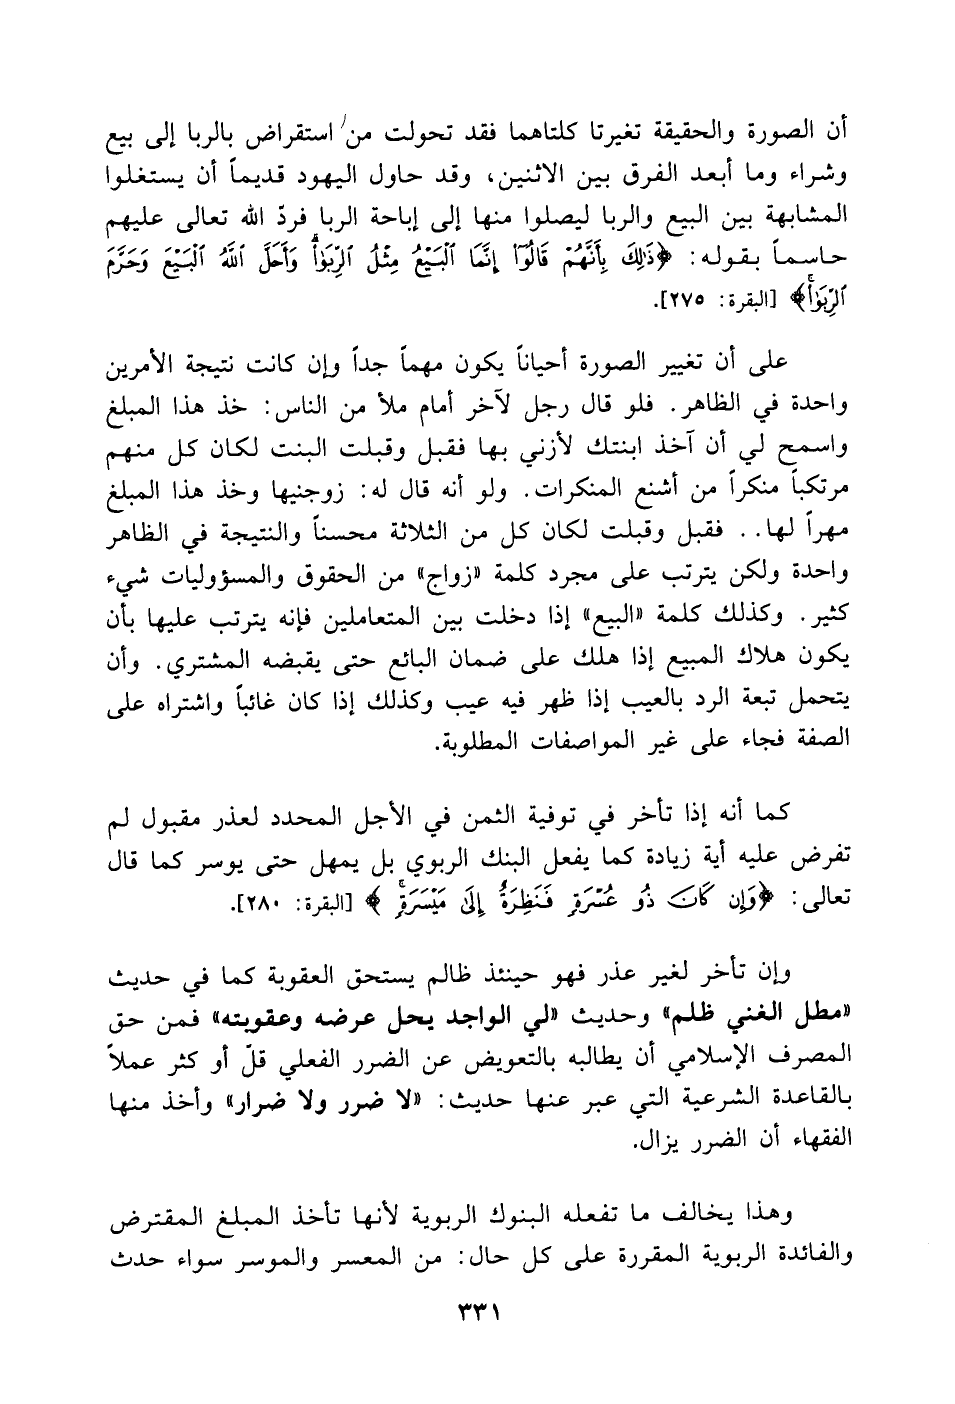 أن الصورة والحقيقة تغيرتا كلتاهما فقد تحولت من استقراض بالربا إلى بيع
وشراء وما أبعد الفرق بين الاثنين، وقد حاول اليهود قديماً أن يستغلوا
المشابهة بين البيع والربا ليصلوا منها إلى إباحة الربا فردّ الله تعالى عليهم
حاسماً بقوله: ﴿ذَٰلِكَ بِأَنَّهُمْ قَالُوٓاْ إِنَّمَا ٱلْبَيْعُ مِثْلُ ٱلرِّبَوٰاْۗ وَأَحَلَّ ٱللَّهُ ٱلْبَيْعَ وَحَرَّمَ
ٱلرِّبَوٰاْۚ﴾ [البقرة: ٢٧٥].
على أن تغيير الصورة أحياناً يكون مهماً جداً وإن كانت نتيجة الأمرين
واحدة في الظاهر. فلو قال رجل لآخر أمام ملأ من الناس: خذ هذا المبلغ
واسمح لي أن آخذ ابنتك لأزني بها فقبل وقبلت البنت لكان كل منهم
مرتكباً منكراً من أشنع المنكرات. ولو أنه قال له: زوجنيها وخذ هذا المبلغ
مهراً لها.. فقبل وقبلت لكان كل من الثلاثة محسناً والنتيجة في الظاهر
واحدة ولكن يترتب على مجرد كلمة «زواج» من الحقوق والمسؤوليات شيء
كثير. وكذلك كلمة «البيع» إذا دخلت بين المتعاملين فإنه يترتب عليها بأن
يكون هلاك المبيع إذا هلك على ضمان البائع حتى يقبضه المشتري. وأن
يتحمل تبعة الرد بالعيب إذا ظهر فيه عيب وكذلك إذا كان غائباً واشتراه على
الصفة فجاء على غير المواصفات المطلوبة.
كما أنه إذا تأخر في توفية الثمن في الأجل المحدد لعذر مقبول لم
تفرض عليه أية زيادة كما يفعل البنك الربوي بل يمهل حتى يوسر كما قال
تعالى: ﴿وَإِن كَانَ ذُو عُسْرَةٍ فَنَظِرَةٌ إِلَىٰ مَيْسَرَةٍۚ﴾ [البقرة: ٢٨٠].
وإن تأخر لغير عذر فهو حينئذ ظالم يستحق العقوبة كما في حديث
«مطل الغني ظلم» وحديث «لي الواجد يحل عرضه وعقوبته» فمن حق
المصرف الإسلامي أن يطالبه بالتعويض عن الضرر الفعلي قلّ أو كثر عملاً
بالقاعدة الشرعية التي عبر عنها حديث: «لا ضرر ولا ضرار» وأخذ منها
الفقهاء أن الضرر يزال.
وهذا يخالف ما تفعله البنوك الربوية لأنها تأخذ المبلغ المقترض
والفائدة الربوية المقررة على كل حال: من المعسر والموسر سواء حدث
٣٣١